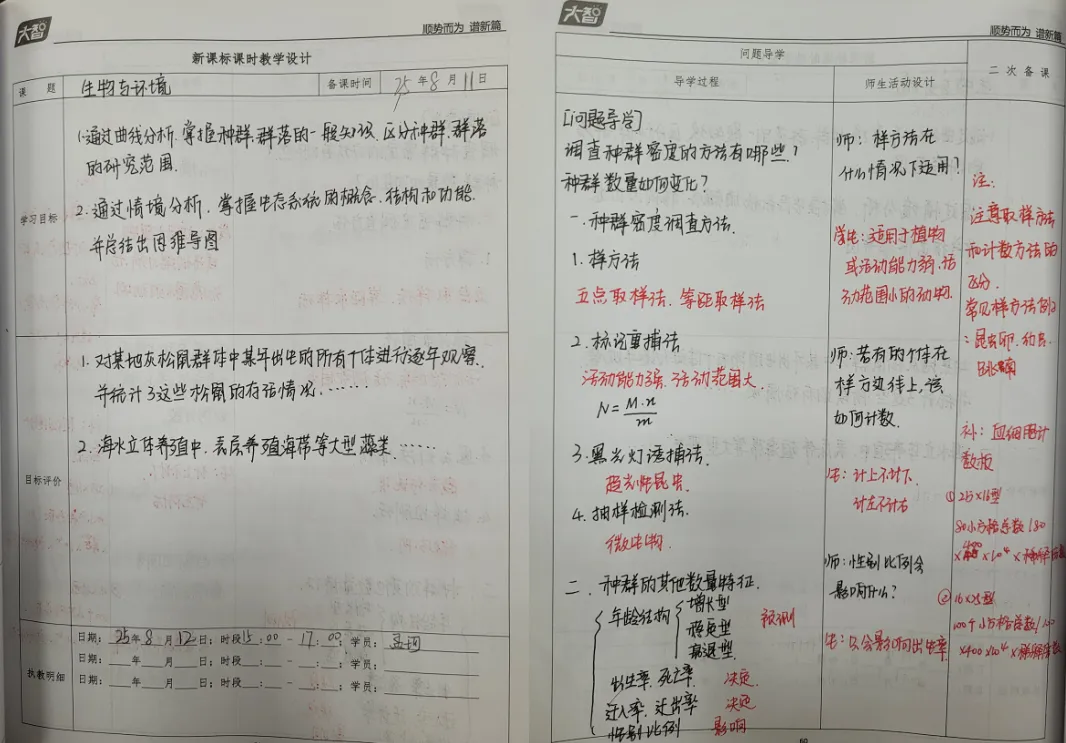 大智
顺势而为 谱新篇
新课标课时教学设计
课 题
生物与环境
备课时间
25年8月11日
学习目标
1.通过曲线分析,掌握种群,群落的一般知识,区分种群,群落
的研究范围.
2.通过情境分析,掌握生态系统的概念、结构和功能.
并总结出思维导图
目标评价
1.对某地灰松鼠群体中某年出生的所有个体进行逐年观察,
并统计了这些松鼠的存活情况,……
2.海水立体养殖中,表层养殖海带等大型藻类……
执教明细
日期:25年8月12日;时段15:00-17:00;学员:孟珂
日期:___年___月___日;时段___:___-___:___;学员:
日期:___年___月___日;时段___:___-___:___;学员:
大智
顺势而为 谱新篇
问题导学
二次备课
导学过程
师生活动设计
[问题导学]
调查种群密度的方法有哪些?
种群数量如何变化?
一.种群密度调查方法.
1.样方法
五点取样法、等距取样法
2.标记重捕法
活动能力强、活动范围大.
N=M·n/m
3.黑光灯诱捕法.
趋光性昆虫
4.抽样检测法.
微生物.
二.种群的其他数量特征.
年龄结构
增长型
稳定型
衰退型
预测
出生率、死亡率 决定.
迁入率、迁出率 决定
性别比例 影响
师:样方法在
什么情况下适用?
学生:适用于植物
或活动能力弱,活
动范围小的动物.
师:若有的个体在
样方边线上,该
如何计数.
生:计上不计下
计左不计右
师:性别比例会
影响什么?
生:只会影响出生率.
注:
注意取样方法
和计数方法的
区分.
常见样方法例子
:昆虫卵、幼虫、
跳蝻
补:血细胞计
数板
①25×16型
80小方格总数/80
×400×10⁴×稀释倍数
②16×25型
100个小方格总数/100
×400×10⁴×稀释倍数